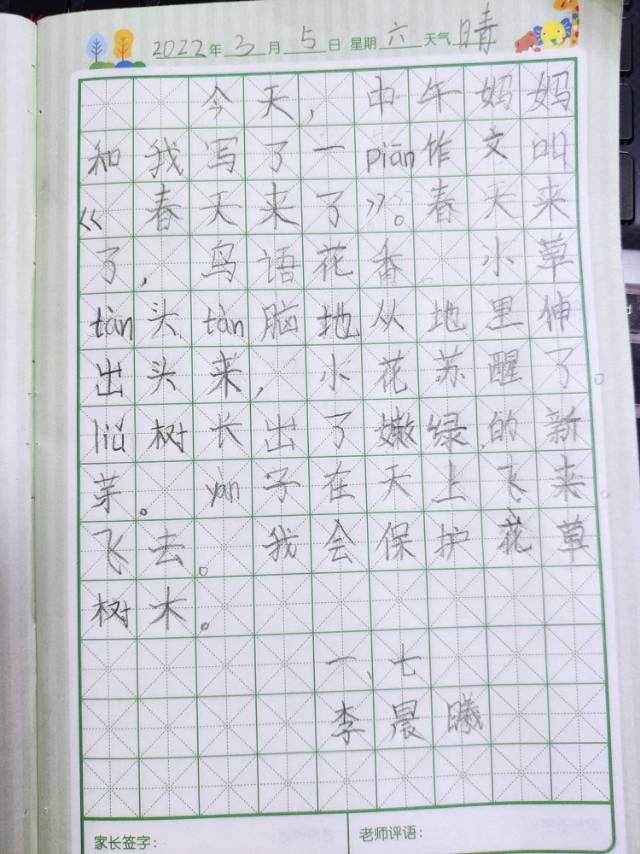 2022年3月5日 星期六天气晴
今天，中午妈妈
和我写了一piān作文叫
《春天来了》。春天来
了，鸟语花香 小草
tàn头tàn脑地从地里伸
出头来，小花苏醒了。
liǔ树长出了嫩绿的新
芽。yàn子在天上飞来
飞去。我会保护花草
树木。
一、七
李晨曦
家长签字： 老师评语：